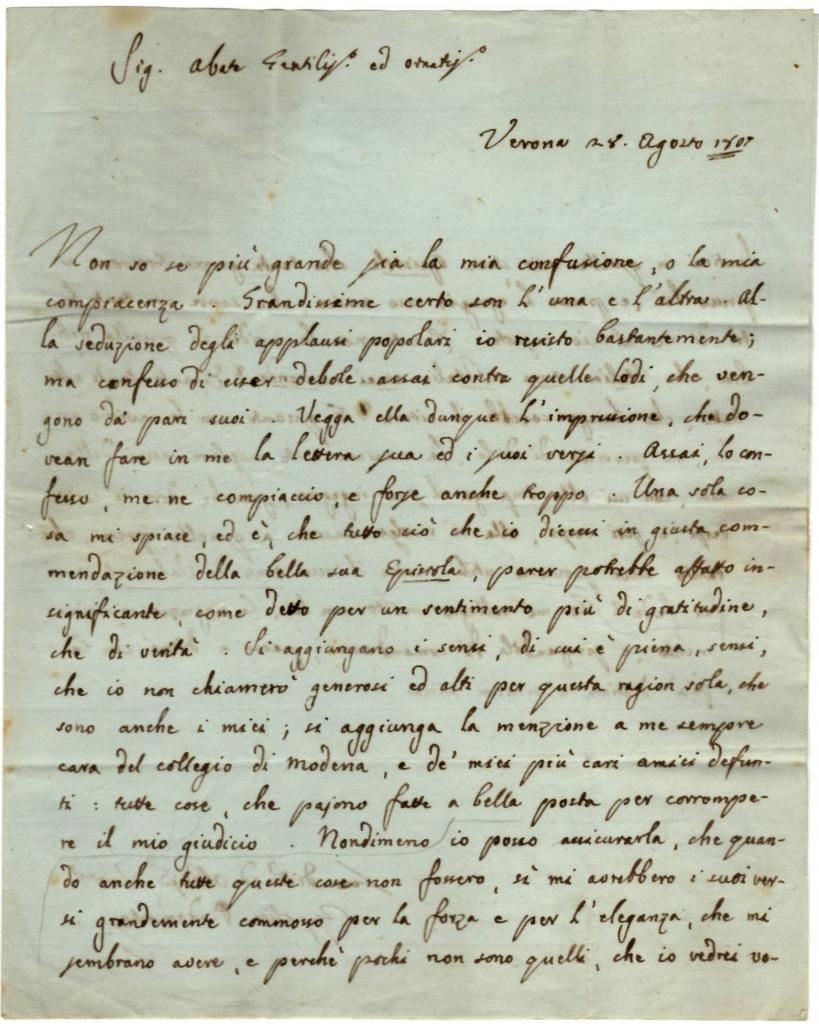 Sig. Abate Gentiliss.º ed ornatiss.º
Verona 28. Agosto 1807
Non so se più grande sia la mia confusione, o la mia
compiacenza. Grandissime certo son l'una e l'altra. Al-
la seduzione degli applausi popolari io resisto bastantemente;
ma confesso di esser debole assai contra quelle lodi, che ven-
gono da' pari suoi. Vegga ella dunque l'impressione, che do-
vean fare in me la lettera sua ed i suoi versi. Assai, lo con-
fesso, me ne compiaccio, e forse anche troppo. Una sola co-
sa mi spiace, ed è, che tutto ciò che io dicessi in giusta com-
mendazione della bella sua Epistola, parer potrebbe affatto in-
significante, come detto per un sentimento più di gratitudine,
che di verità. Si aggiungano i sensi, di cui è piena, sensi,
che io non chiamerò generosi ed alti per questa ragion sola, che
sono anche i miei; si aggiunga la menzione a me sempre
cara del collegio di Modena, e de' miei più cari amici defun-
ti: tutte cose, che pajono fatte a bella posta per corrompe-
re il mio giudicio. Nondimeno io posso assicurarla, che quan-
do anche tutte queste cose non fossero, sì mi avrebbero i suoi ver-
si grandemente commosso per la forza e per l'eleganza, che mi
sembrano avere, e perchè pochi non sono quelli, che io vedrei vo-